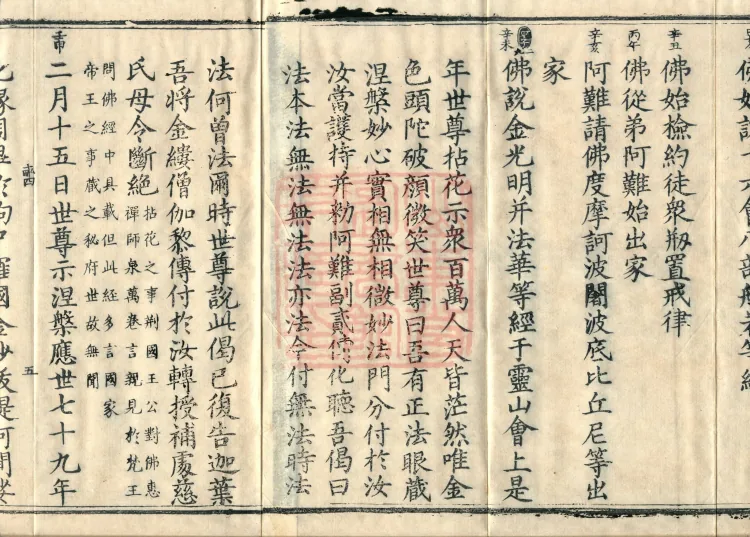 八部般若等經
辛丑
佛始檢約徒衆剏置戒律
丙午
佛從弟阿難始出家
辛亥
阿難請佛度摩訶波闍波底比丘尼等出
家
辛未
佛說金光明并法華等經于靈山會上是
年世尊拈花示衆百萬人天皆茫然唯金
色頭陀破顏微笑世尊曰吾有正法眼藏
涅槃妙心實相無相微妙法門分付於汝
汝當護持并勑阿難副貳傳化聽吾偈曰
法本法無法無法法亦法今付無法時法
法何曾法爾時世尊說此偈已復告迦葉
吾將金縷僧伽黎傳付於汝轉授補處慈
氏毋令斷絕
拈花之事荆國王公對佛惠
禪師泉萬卷言親見於梵王
問佛經中具載但此經多言國家
帝王之事藏之秘府世故無聞
壬申
二月十五日世尊示涅槃應世七十九年
五
化緣周畢於拘尸羅國金沙跋提河間娑